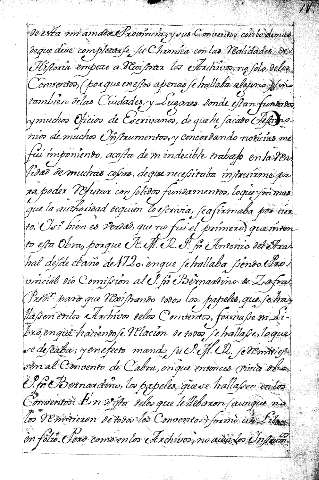 de esta mi amada Provincia, y sus Conventos, considerando
de que debe completarse su Chronica con las realidades de
Historia empeze a registrar los Archivos, no solo de los
Conventos, (porque en estos apenas se hallaba alguno, sino
tambien de las Ciudades, y Lugares donde estan fundados
y muchos Oficios de Escrivanos, de que he sacado
nio de muchos Instrumentos, y concordando noticias me
fui imponiendo, acosta de un indecible trabajo en la ver-
dad de muchas cosas, de que necesitaba instruirme pa-
ra poder refutar con solidos fundamentos, lo que sin mas
que la authoridad de quien lo escrivia, se afirmaba por cier-
to. Si bien es verdad, que no fui el primero que inten-
to esta Obra, porque N. M. R. P. fr. Antonio de
desde el año de 1720. en que se hallaba siendo Pro-
vincial dio Comission al P. fr. Bernardino de Zafra
para que registrando todos los papeles, que se ha-
llassen en los Archivos de los Conventos, formasse un Li-
bro, en que haciendo relacion de todo, se hallasse, lo que
se deseaba; y en efecto mandó su P. M. R. se remities-
sen al Convento de Cabra, que entonces vivia el
P. fr. Bernardino, los papeles, que se hallassen en los
Conventos. En vista de los que le llevaron, (aunque no
los remitieron de todos los Conventos) formó un
en folio. Pero como en los Archivos, no avia los Instrum-